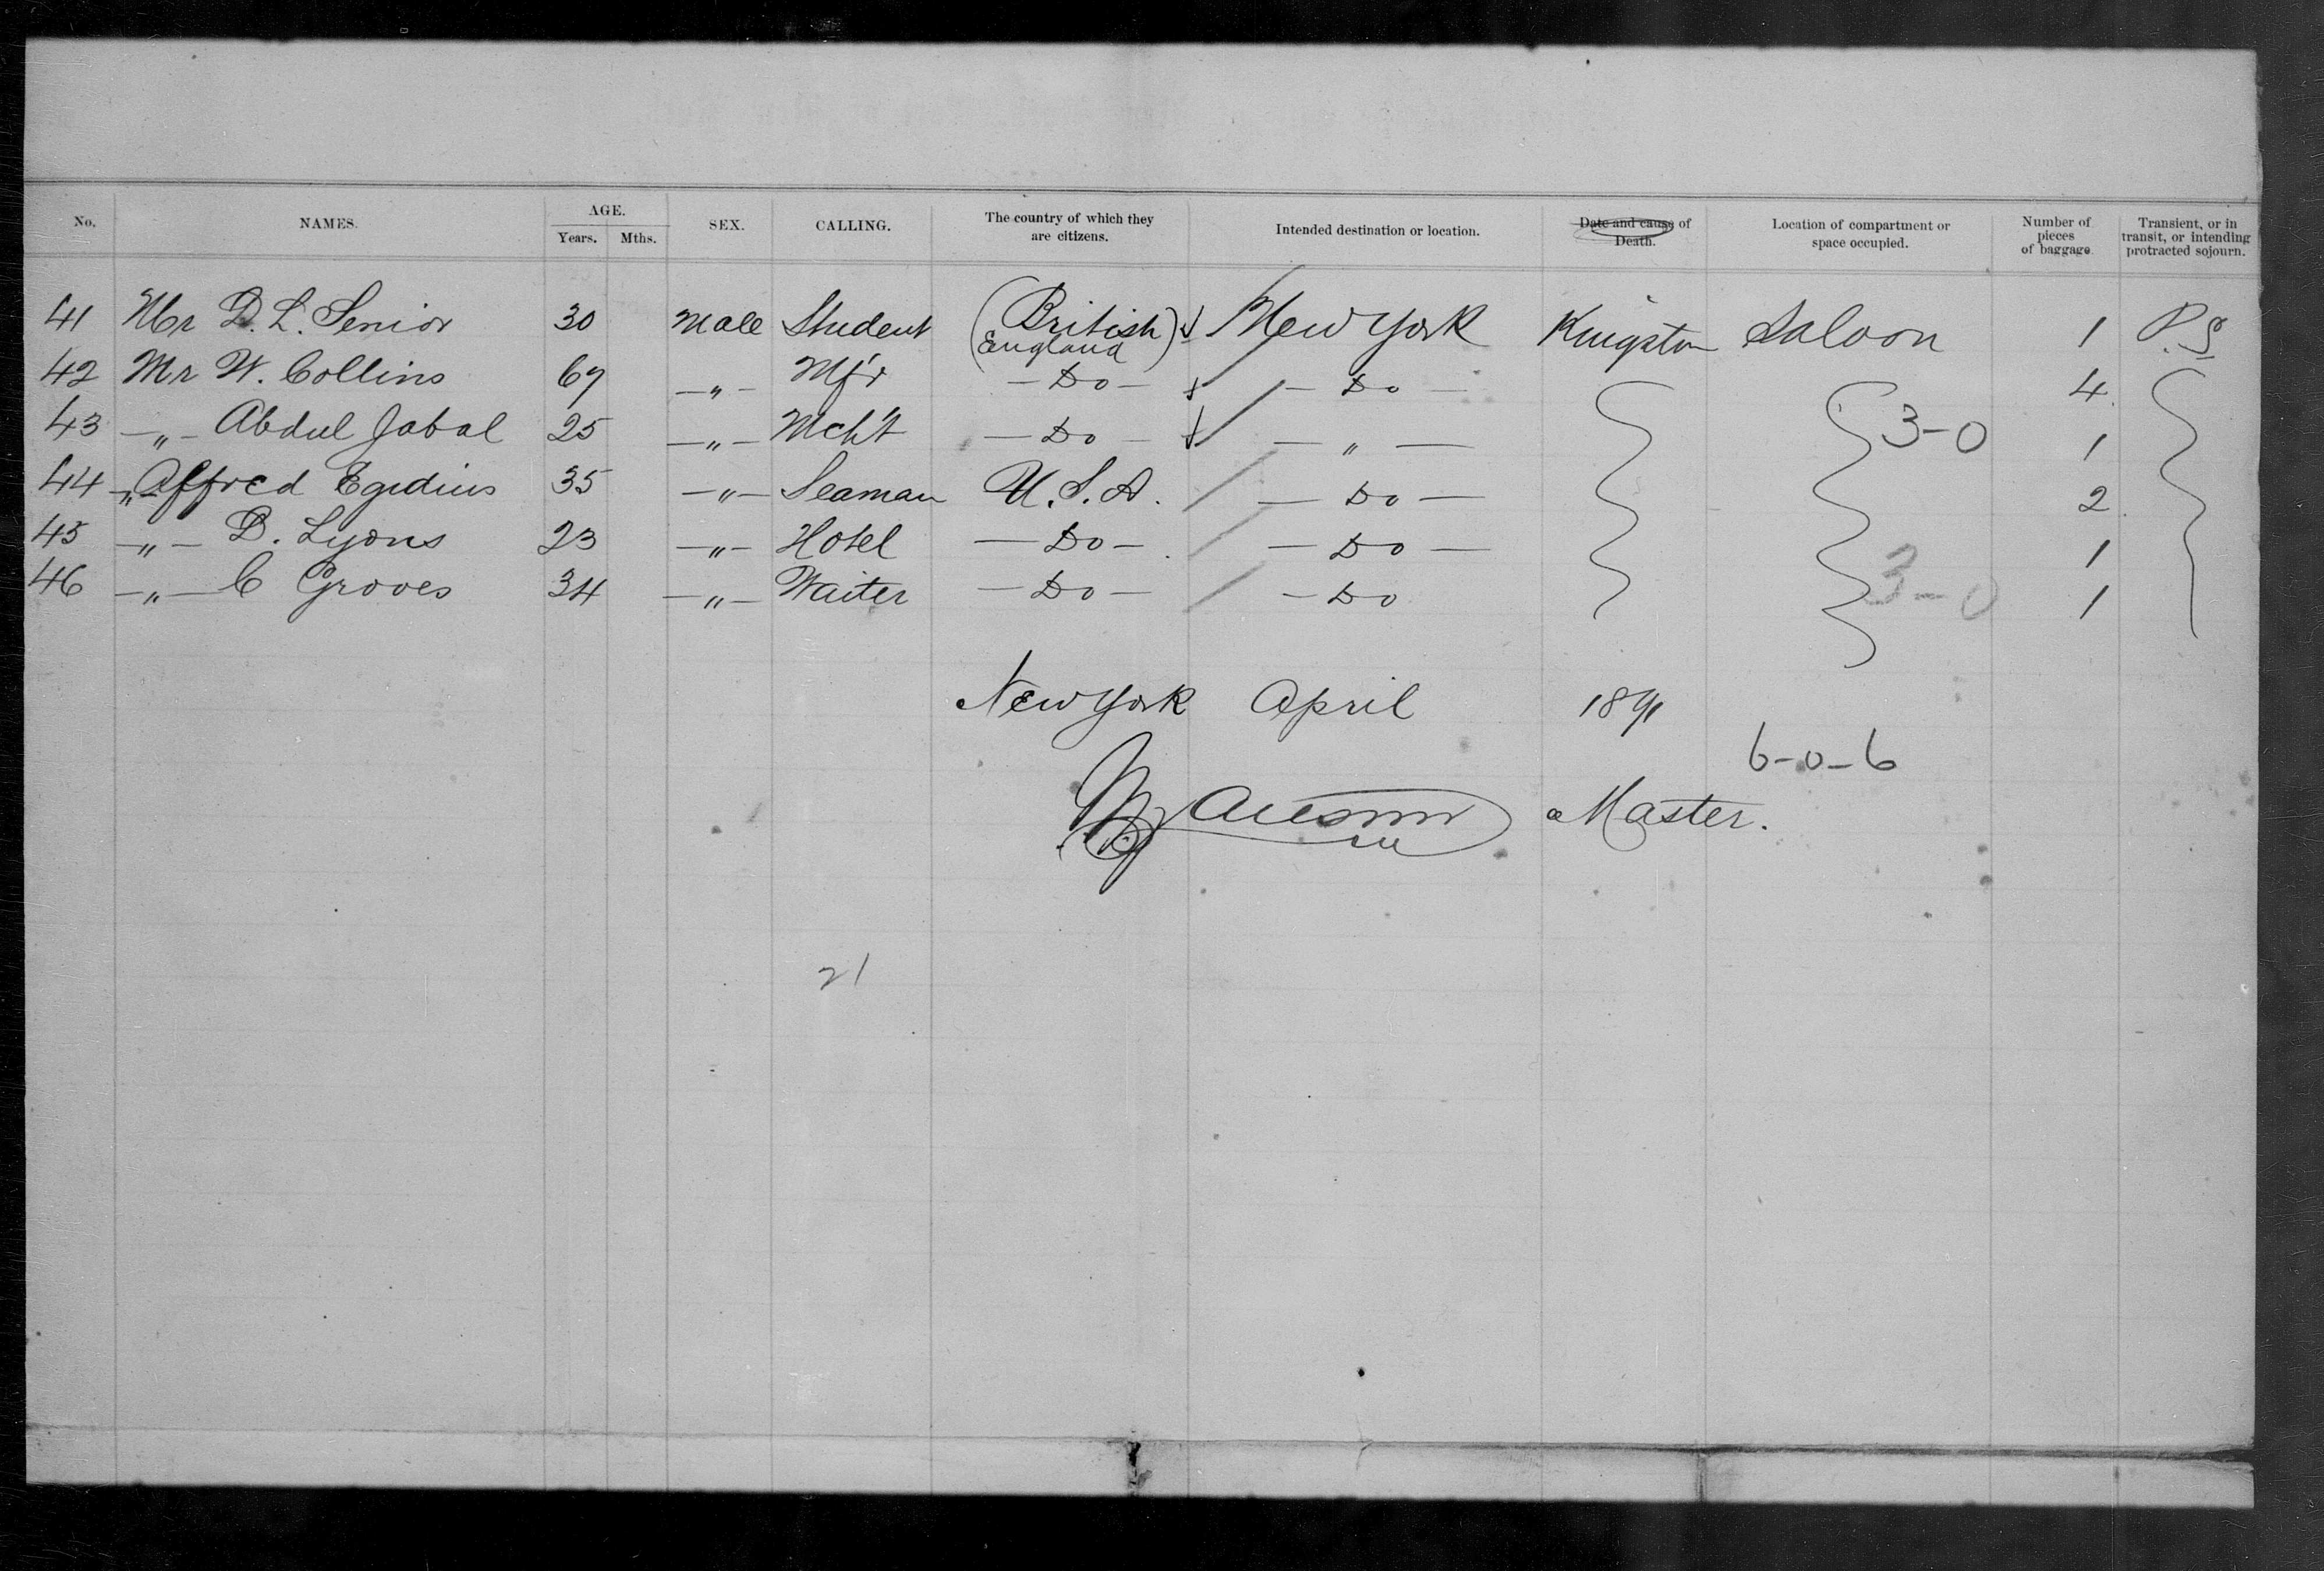 No. NAMES. AGE. Years. Mths. SEX. CALLING. The country of which they are citizens. Intended destination or location. Date and cause of Death. Location of compartment or space occupied. Number of pieces of baggage. Transient, or in transit, or intending protracted sojourn.
41 Mr D. L. Senior 30 Male Student (British England) New York Kingston Saloon 1 P.S.
42 Mr W. Collins 67 —„— Mf'r — Do — — Do — 4
43 —„— Abdul Jabal 25 —„— Mch't — Do — — „ — 3-0 1
44 —„— Alfred Egidius 35 —„— Seaman U.S.A. — Do — 2
45 —„— B. Lyons 23 —„— Hotel — Do — — Do — 1
46 —„— C Groves 34 —„— Waiter — Do — — Do 3-0 1
New York April 1891
6-0-6
Master.
21